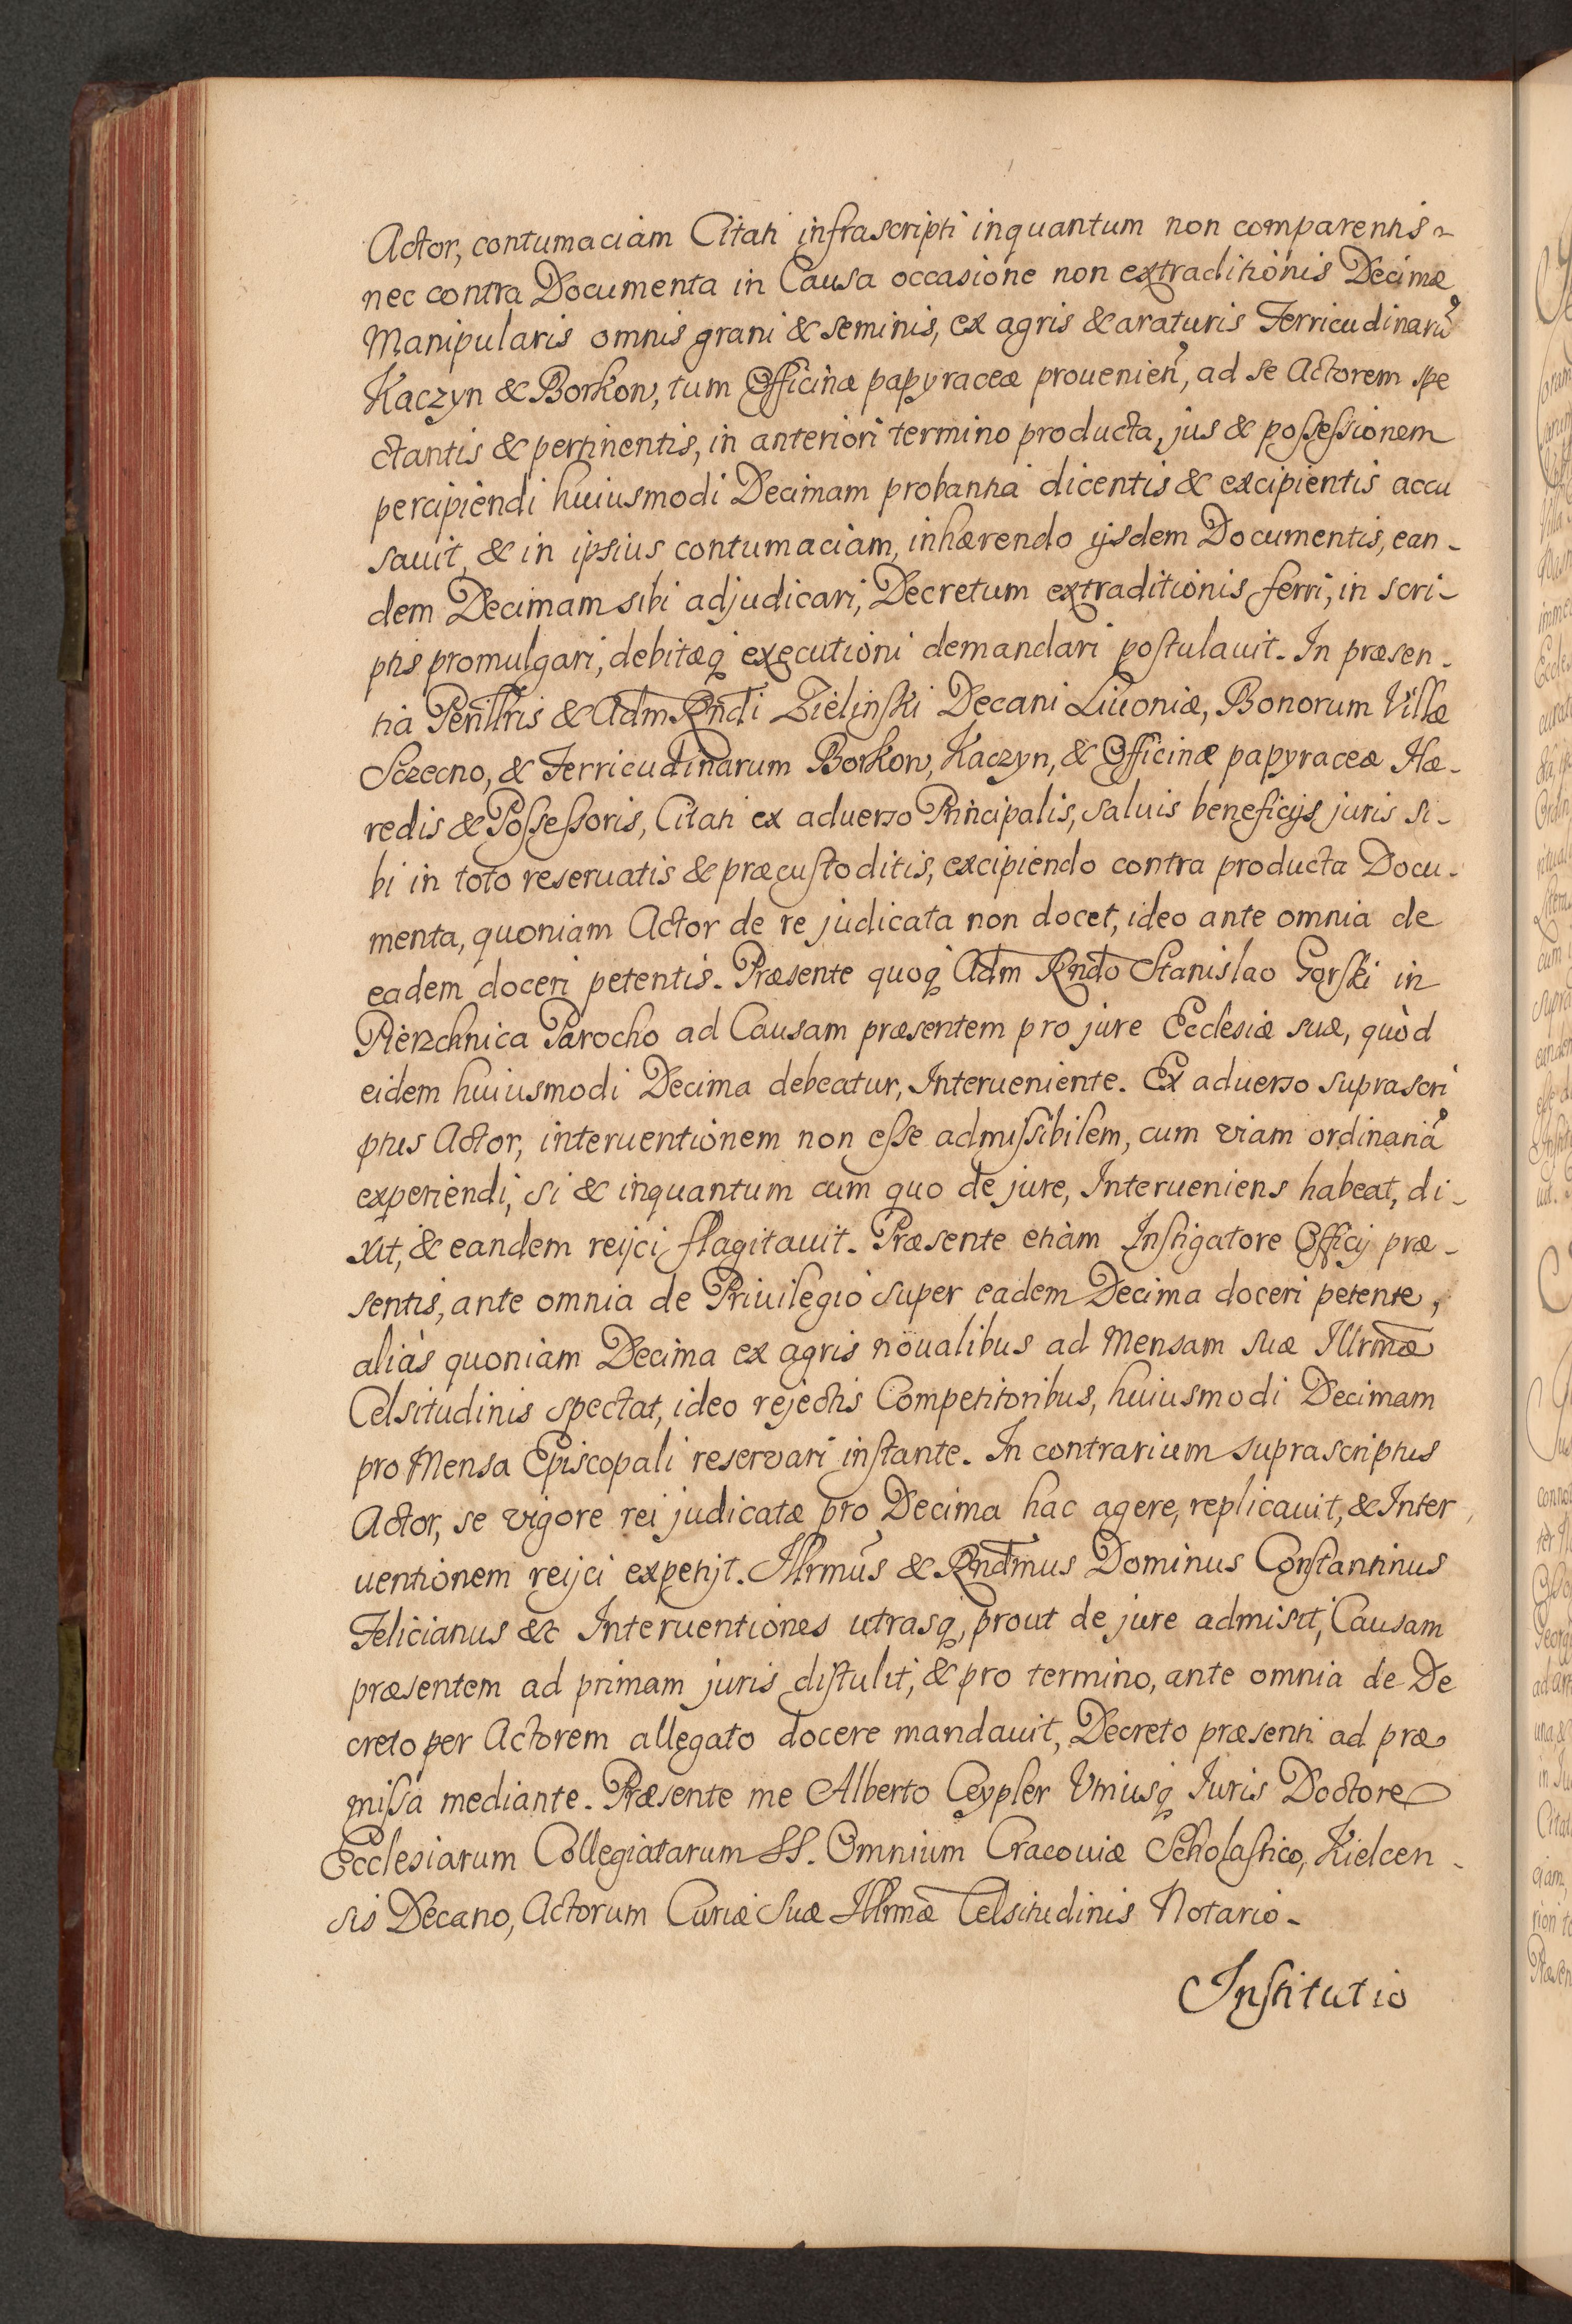 Actor, contumaciam Citati infrascripti inquantum non comparentis
nec contra Documenta in Causa occasione non extraditionis Decimæ
Manipularis omnis grani & seminis, ex agris & araturis Ferricudinarũ
Kaczyn & Borkow, tum Officinæ papyraceæ prouenien̉, ad se Actorem spe
ctantis & pertinentis, in anteriori termino producta, jus & possessionem
percipiendi huiusmodi Decimam probantia dicentis & excipientis accu
sauit, & in ipsius contumaciam, inhærendo ijsdem Documentis, ean-
dem Decimam sibi adjudicari, Decretum extraditionis ferri, in scri-
ptis promulgari, debitæq́ executioni demandari postulauit. In præsen-
tia & Adm Rndi Zielinski Decani Liuoniæ, Bonorum Villæ
Sczecno, & Ferricudinarum Borkow, Kaczyn, & Officinæ papyraceæ Hæ-
redis & Possessoris, Citati ex aduerso Principalis, saluis beneficijs juris si-
bi in toto reseruatis & præcustoditis, excipiendo contra producta Docu-
menta, quoniam Actor de re judicata non docet, ideo ante omnia de
eadem doceri petentis. Præsente quoq́ Adm Rndo Stanislao Gorski in
Pierzchnica Parocho ad Causam præsentem pro jure Ecclesiæ suæ, quòd
eidem huiusmodi Decima debeatur, Interueniente. Ex aduerso suprascri
ptus Actor, interuentionem non esse admissibilem, cum viam ordinariã
experiendi, si & inquantum cum quo de jure, Interueniens habeat, di-
xit, & eandem reijci flagitauit. Præsente etiam Instigatore Officij præ-
sentis, ante omnia de Priuilegio super eadem Decima doceri petente,
aliàs quoniam Decima ex agris noualibus ad Mensam suæ Illrmæ
Celsitudinis spectat, ideo rejectis Competitoribus, huiusmodi Decimam
pro Mensa Episcopali reservari instante. In contrarium suprascriptus
Actor, se vigore rei judicatæ pro Decima hac agere, replicauit, & Inter
uentionem reijci expetijt. Illrmus & Rndmus Dominus Constantinus
Felicianus &c Interuentiones utrasq́, prout de jure admisit, Causam
præsentem ad primam juris distulit, & pro termino, ante omnia de De
creto per Actorem allegato docere mandauit, Decreto præsenti ad præ
missa mediante. Præsente me Alberto Ceypler Vtriusq́ Iuris Doctore
Ecclesiarum Collegiatarum SS. Omnium Cracouiæ Scholastico, Kielcen-
sis Decano, Actorum Curiæ Suæ Illrmæ Celsitudinis Notario-
Institutio